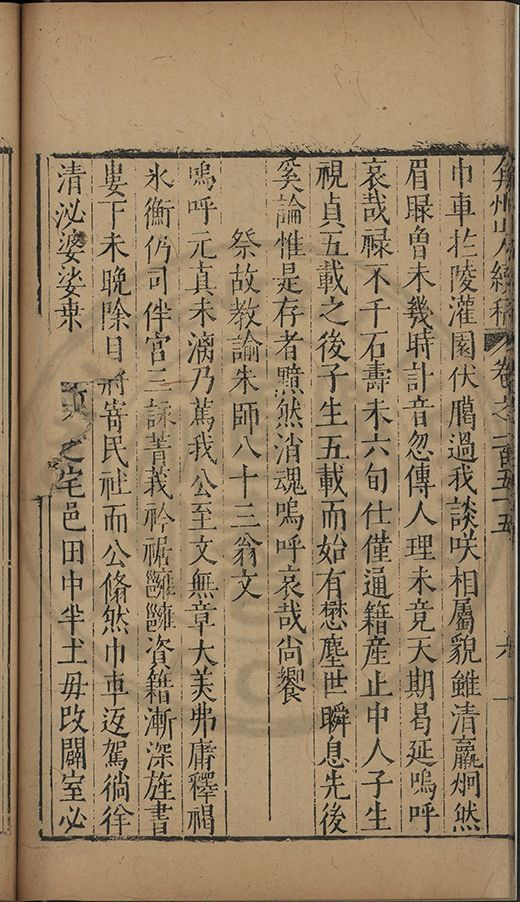 弇州山人續稿 卷之一百五十五 六
巾車於陵灌園伏臈過我談咲相屬貌雖清羸炯然
眉睩曾未幾時訃音忽傳人理未竟天期曷延嗚呼
哀哉祿不千石壽未六旬仕僅通籍産止中人子生
視貞五載之後子生五載而始有懋塵世瞬息先後
奚論惟是存者黯然消魂嗚呼哀哉尚饗
祭故教諭朱師八十三翁文
嗚呼元真未漓乃篤我公至文無章大美弗庸釋褐
氷衡仍司伴宮三詠菁莪衿裾雝雝資籍漸深旌書
婁下未晩除日將寄民社而公翛然巾車返駕徜徉
清泌婆娑桒 之宅邑田中半土毋改闢室必